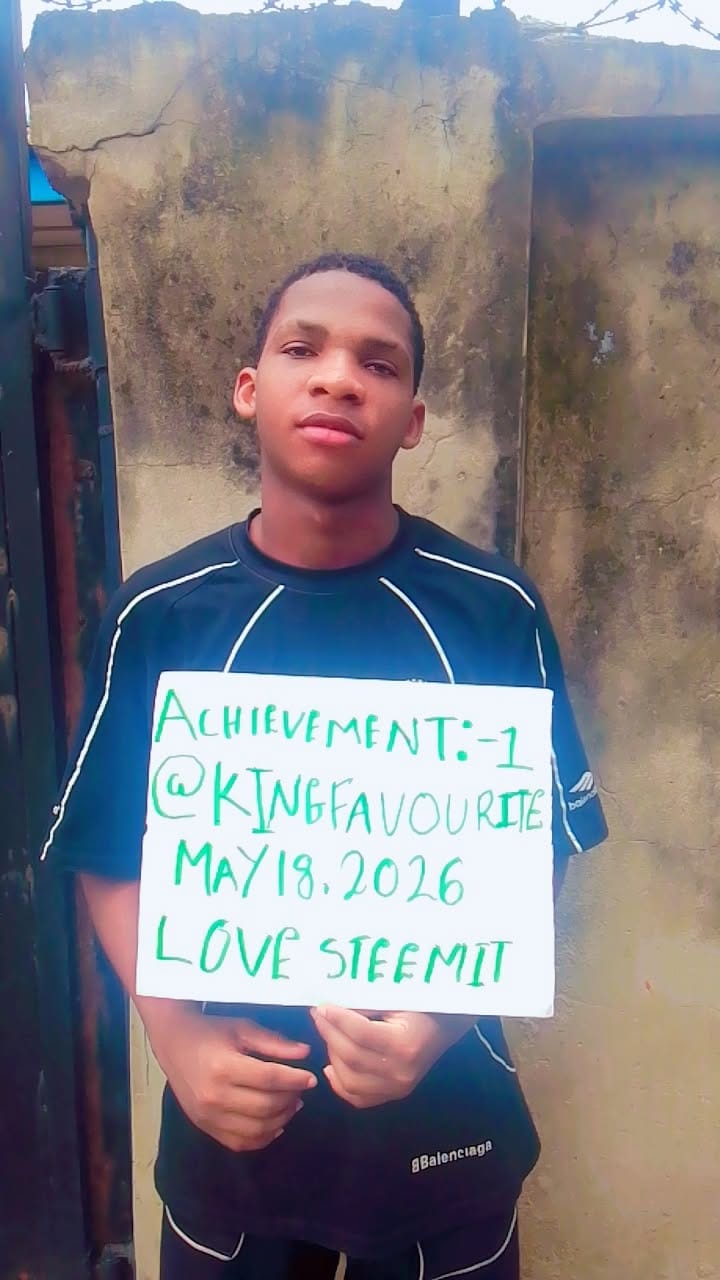 ACHIEVEMENT:-1
@KINGFAVOURITE
MAY 18.2026
LOVE STEEMIT
Balenciaga